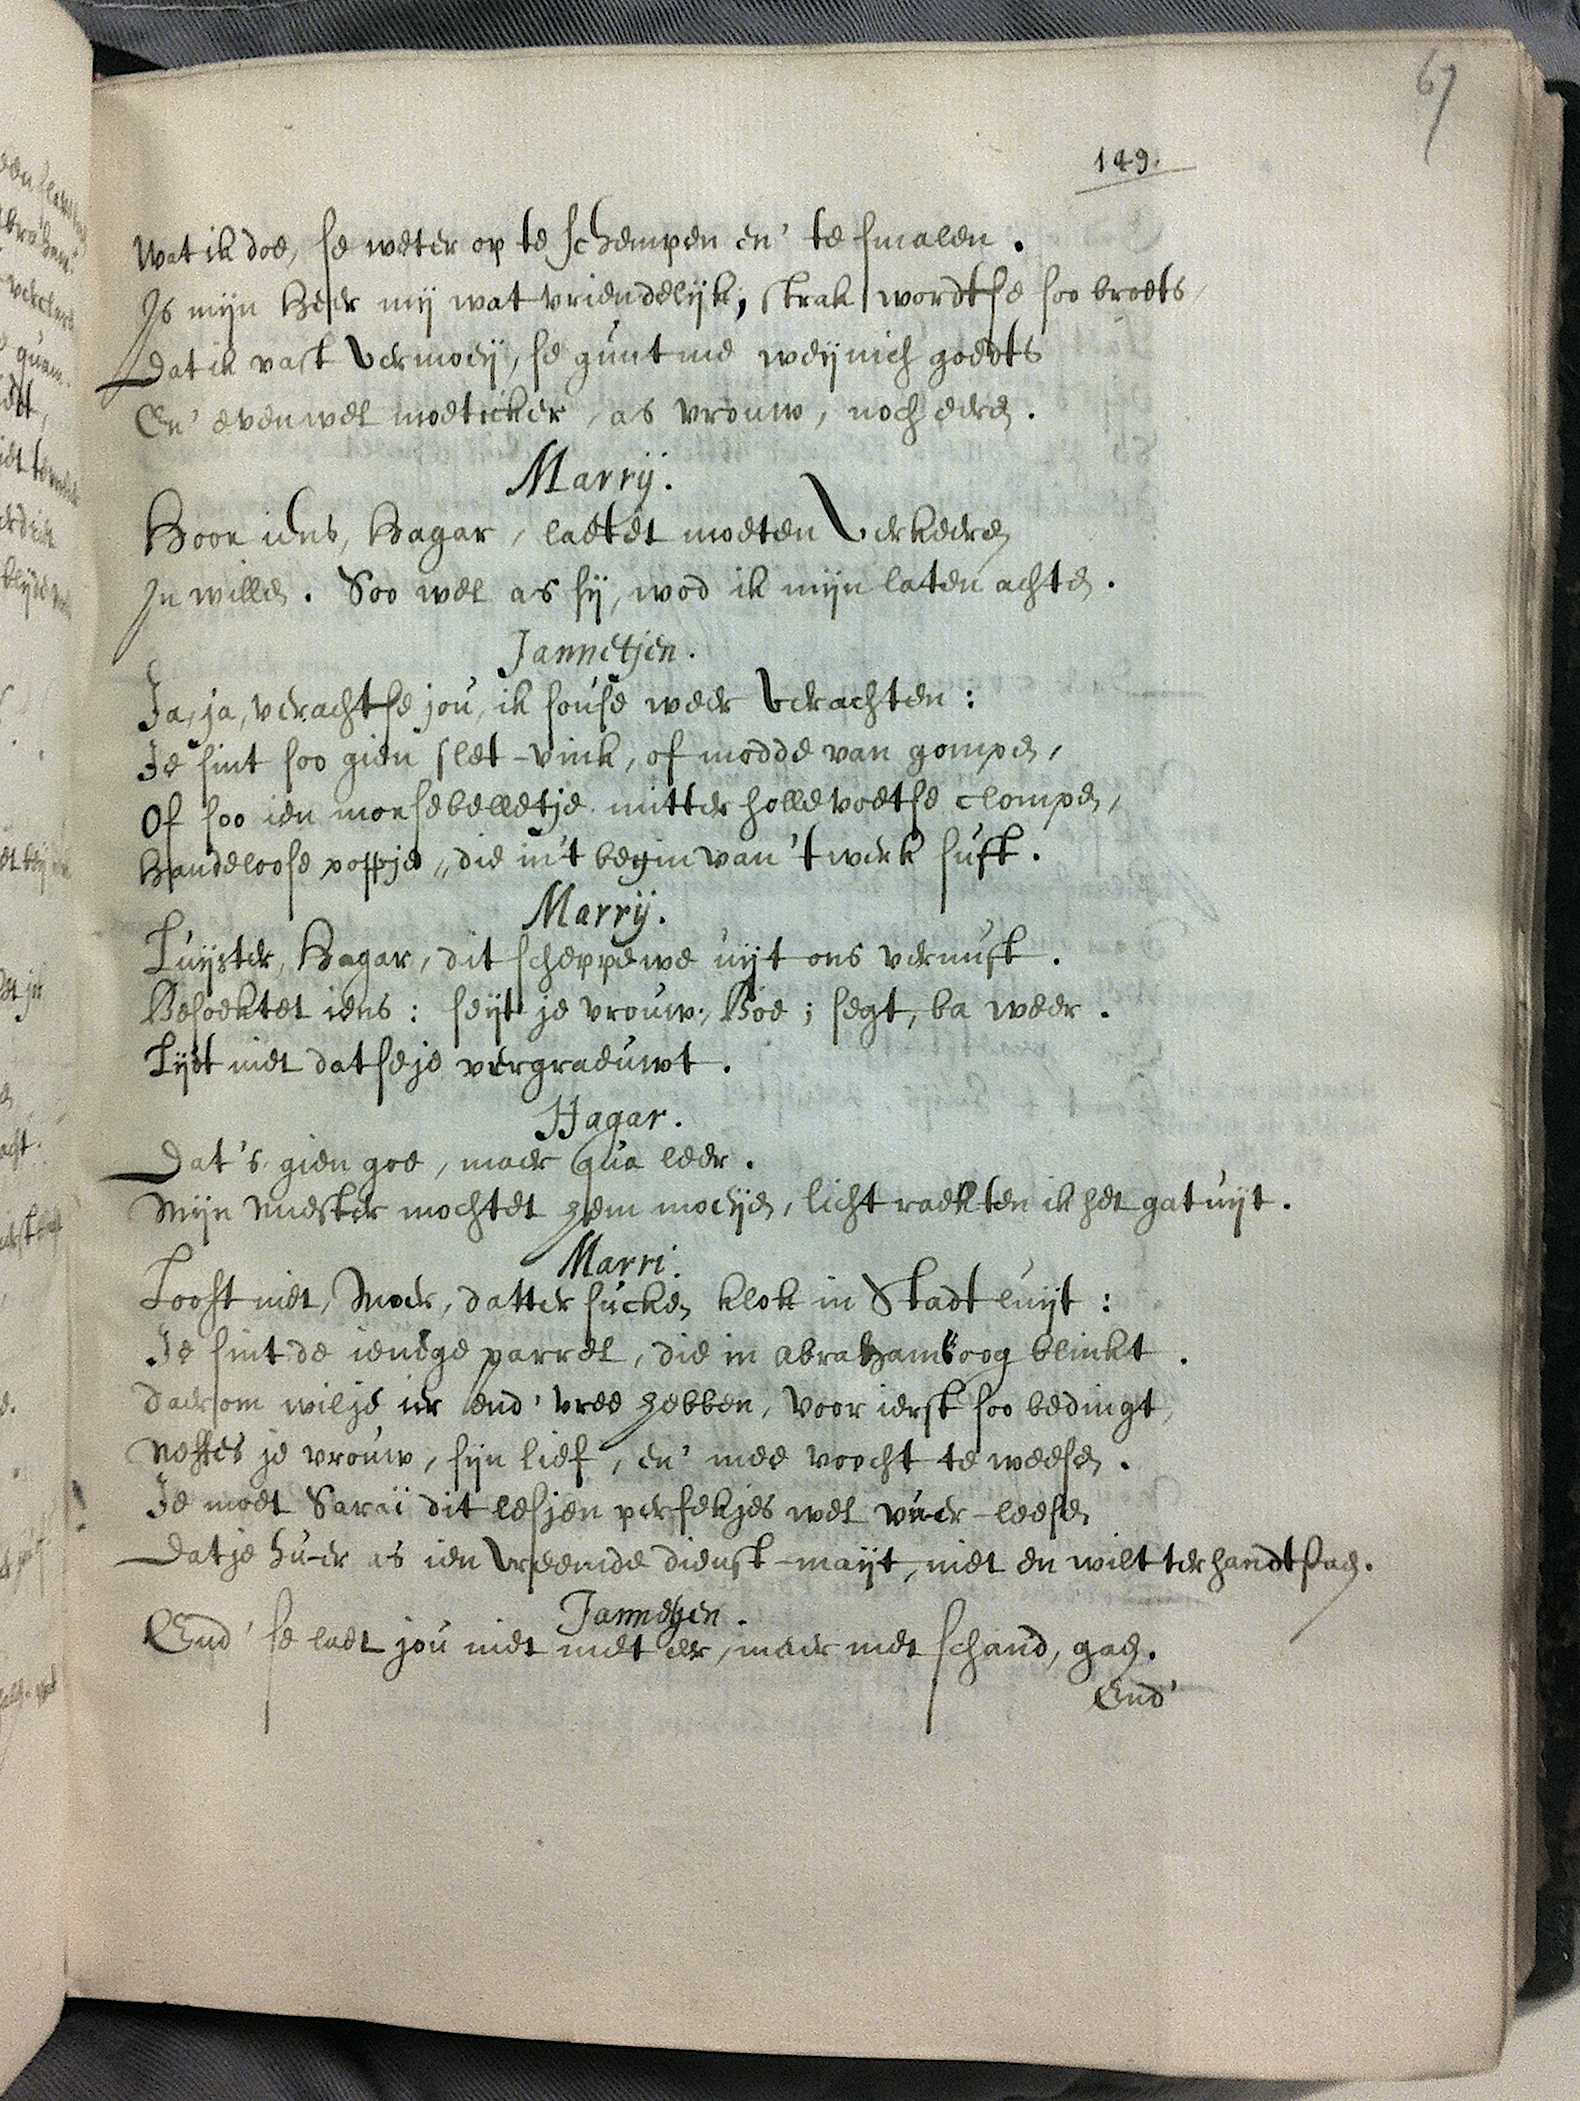 67
149.
Wat ik doe, se weter op te schempen en' te smalen.
Is mijn Heer mij wat vriendelijk, strak wordtse soo broets,
Dat ik vast vermoeij, se gunt me weijnich goedts
En' evenwel moeticker, as vrouw, noch eeren.
Marrij.
Hoor iens, Hagar, laetet moeten verkeeren
In willen. Soo wel as sij, wod ik mijn laten achten.
Jannetjen.
Ja, ja, verachtse jou, ik souse weer verachten:
Je sint soo gien slet-vink, of modde van gompen,
Of soo ien morsebelletje mitter hollevoetse clompen,
Handeloose poppjes, die in't begin van 't werk suft.
Marrij.
Luijster, Hagar, dit scheppewe uijt ons vernuft.
Besoektet iens: seijt je vrouw, Boe; segt, ba weer.
Lijdt niet dat seje vergraeuwt.
Hagar.
Dat's gien goe, maer qua leer.
Mijn Miester mochtet hem moeijen, licht raekten ik het gat uijt.
Marri.
Looft niet, Moer, datter sucken klok in Stadt luijt:
Je sint de ienige parrel, die in Abrahams oog blinkt.
Daerom wilje ier end' vree hebben, voor ierst soo bedingt,
Neffes je vrouw, sijn lief, en' mee voocht te weesen.
Je moet Saraï dit lesjen perfekjes wel vuer-leesen
Datje huer as ien vreemde dienst-maijt, niet en wilt ter handt staen.
Jannetjen.
End' se laet jou niet met eer, maer met schand, gaen.
End'